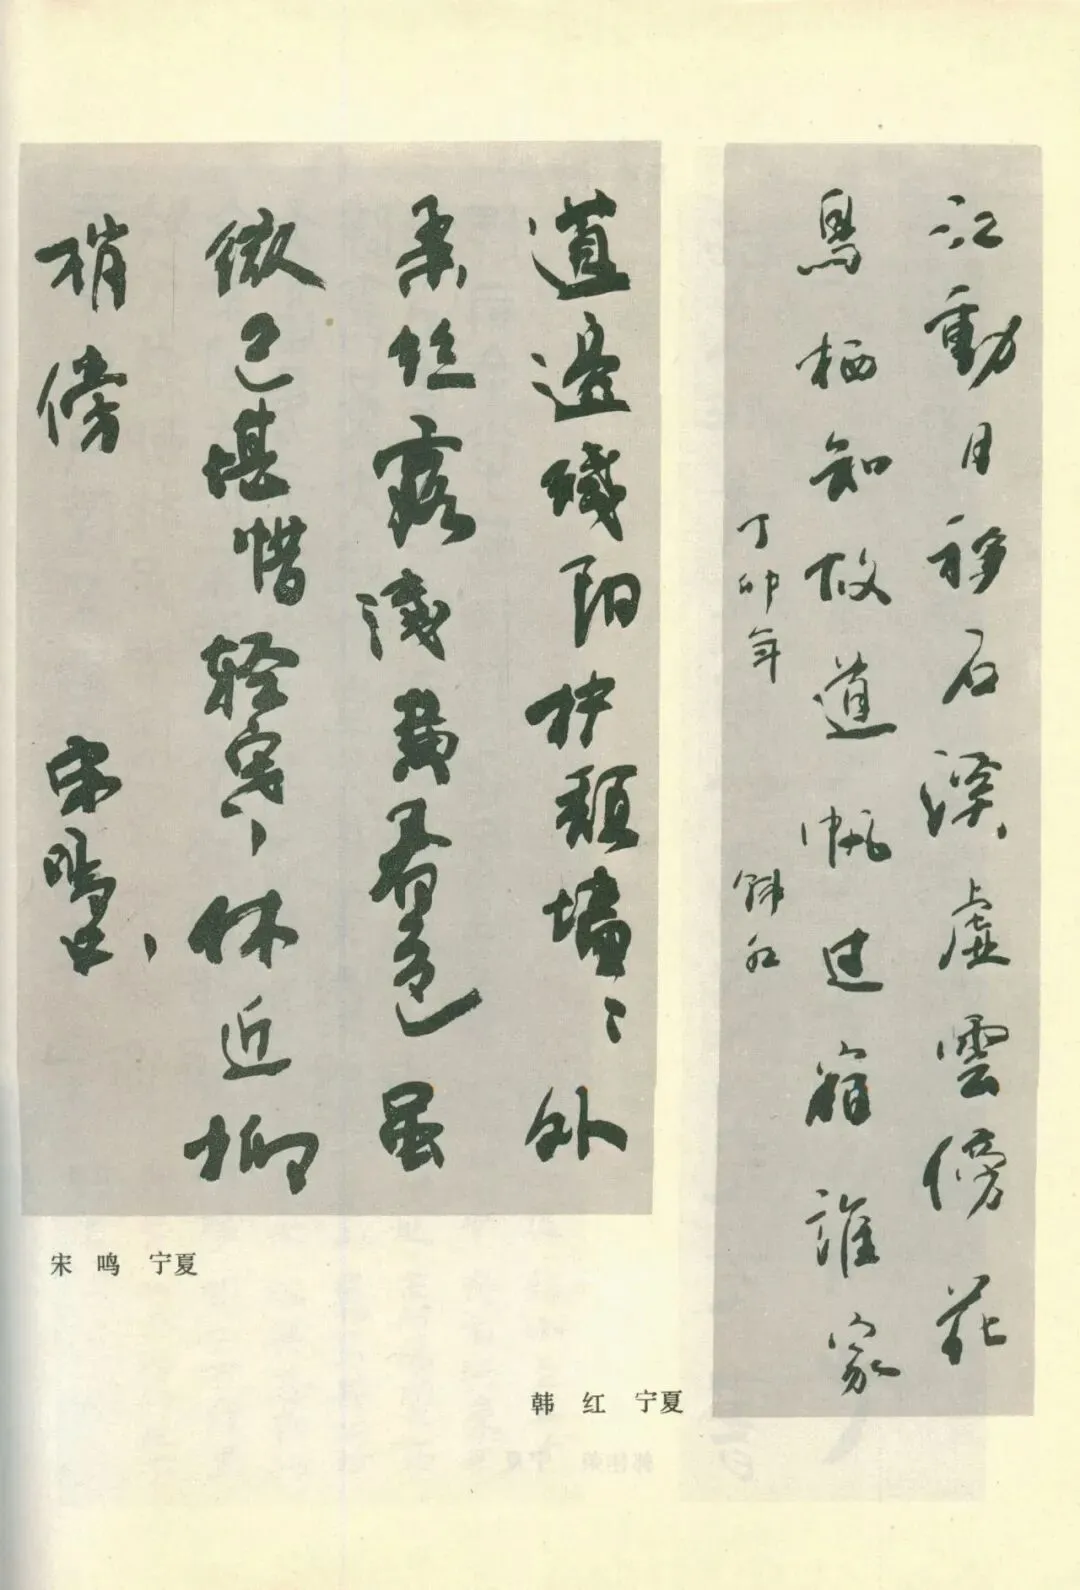 江動月移石溪虚雲傍花
鳥栖知故道帆过宿誰家
丁卯年 韩红
道邊殘阳护頹墙〻外
柔丝露浅黄春色虽
微已堪惜轻寒休近柳
梢傍 宋鸣书
宋 鸣 宁夏
韩 红 宁夏